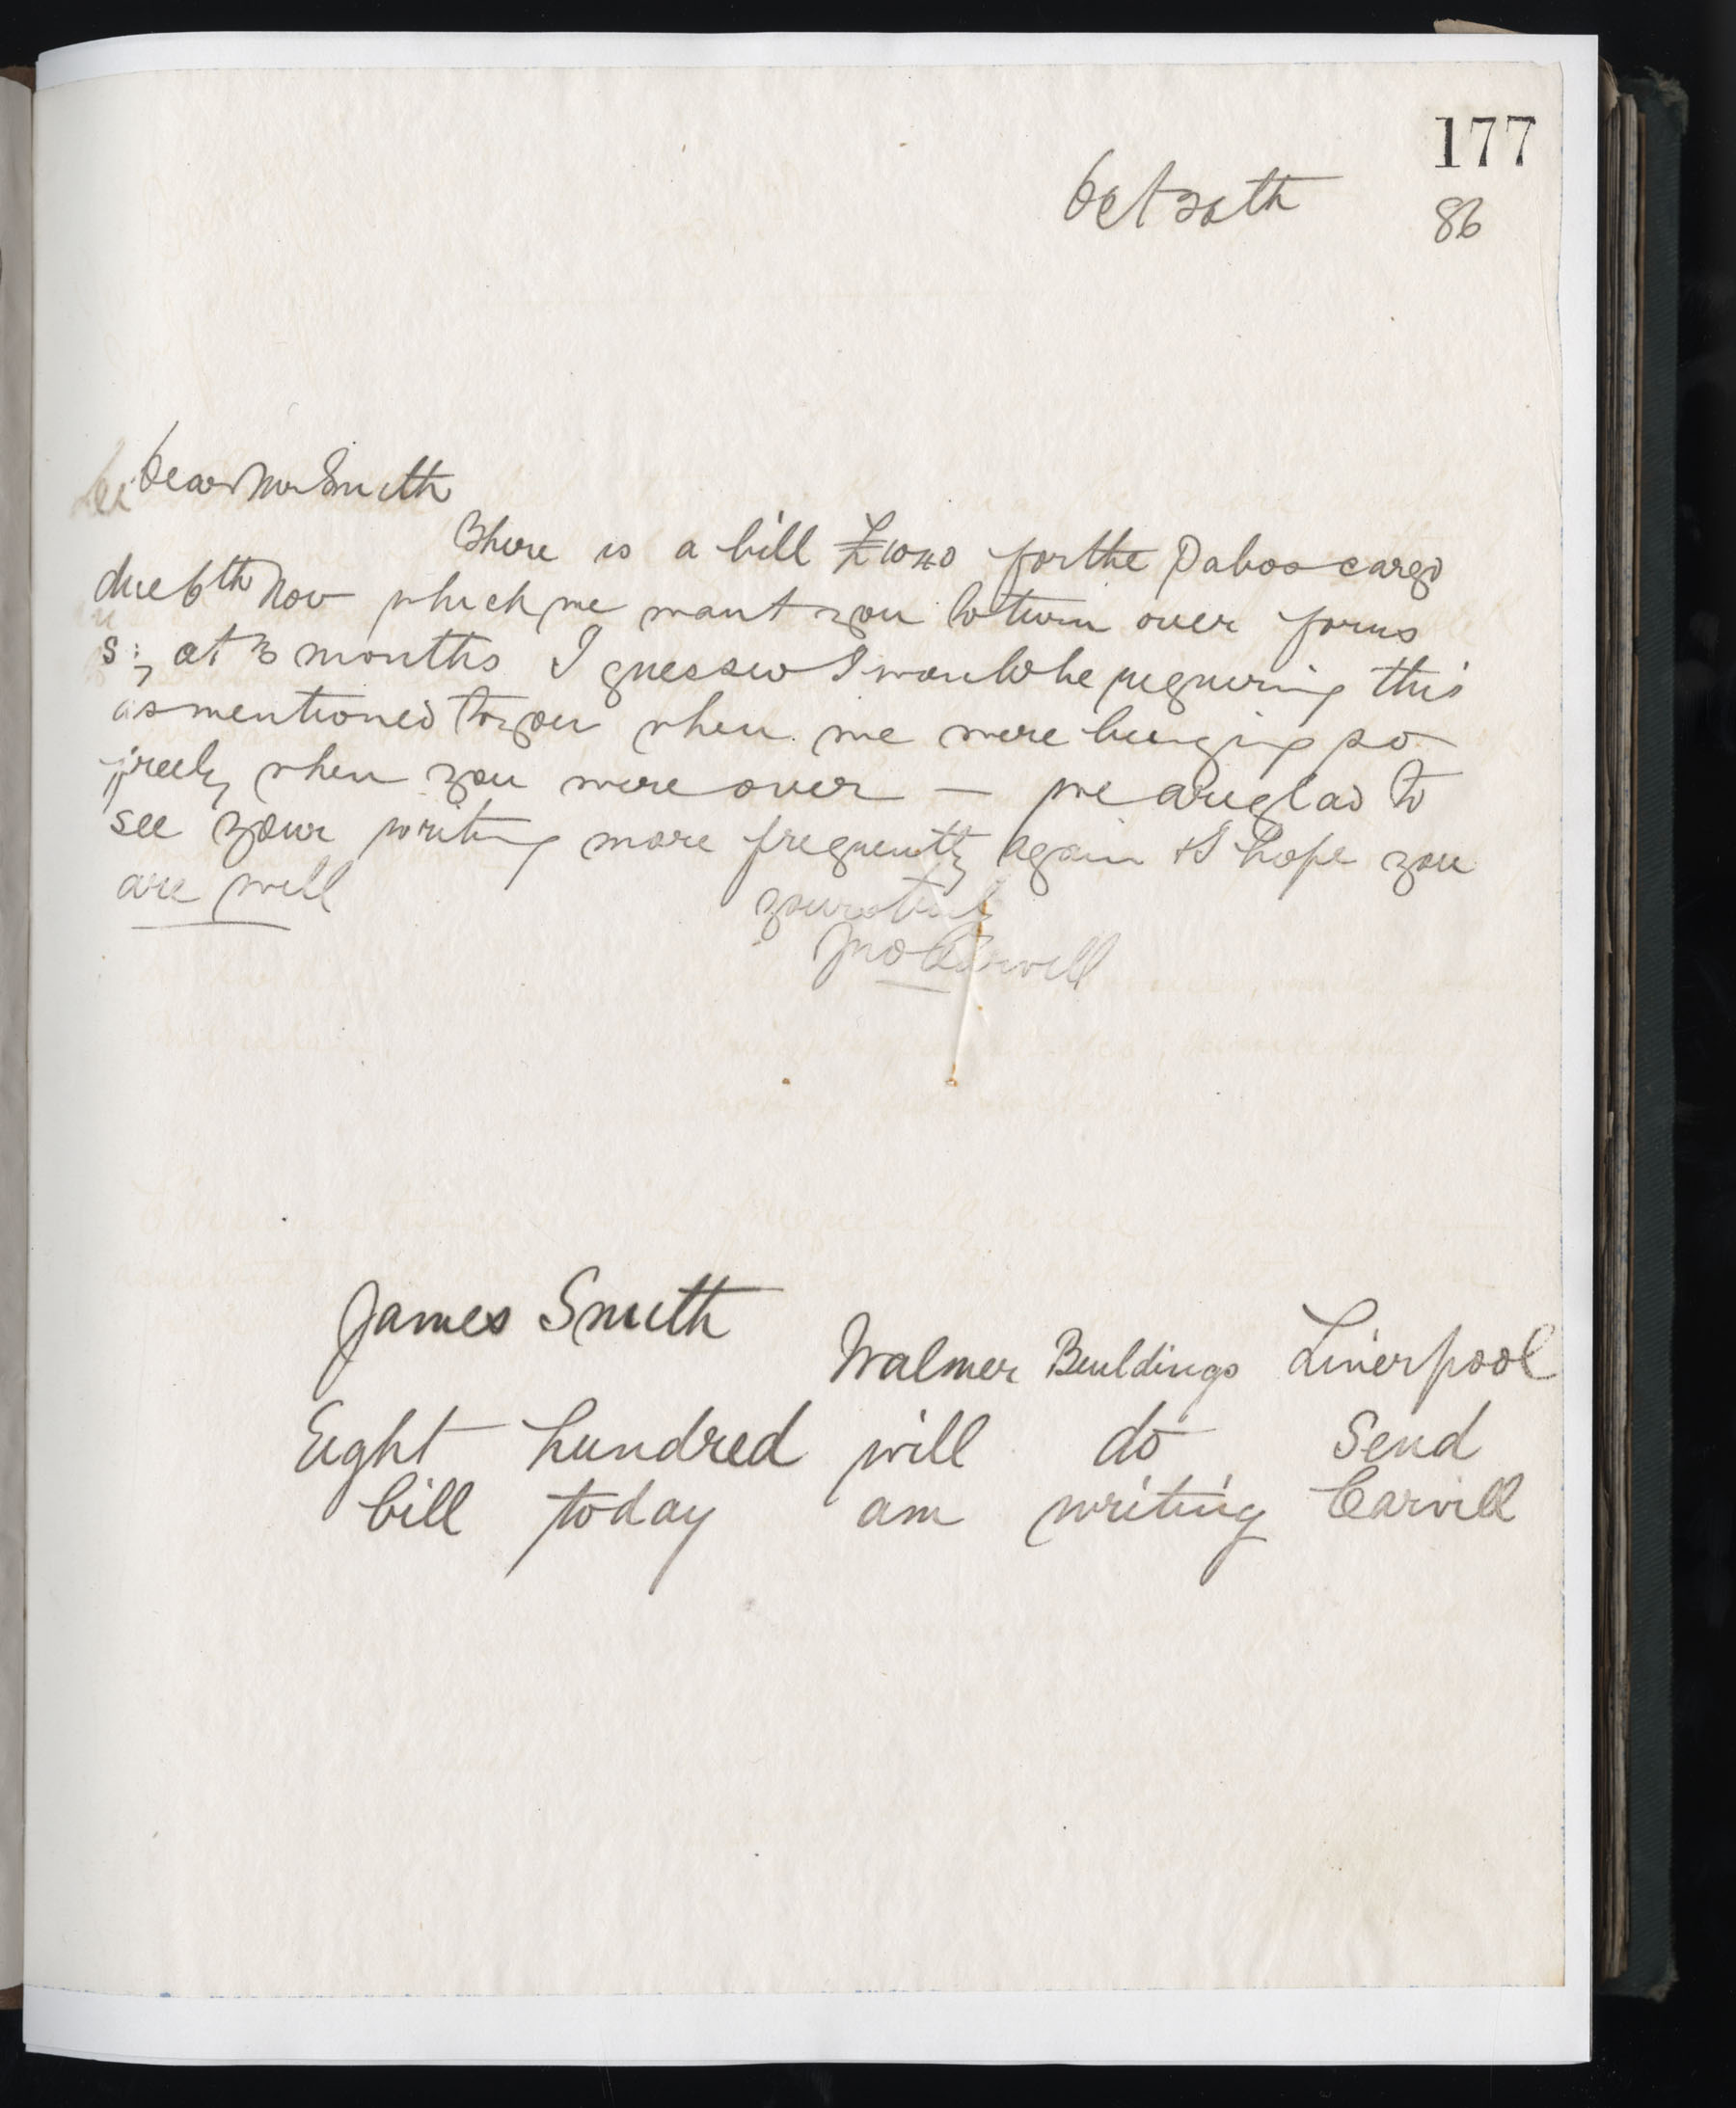 177
Oct 20th 86
Dear Mr Smith
There is a bill £1040 for the Paboo cargo
due 6th Nov which we want you to turn over for us
at 3 months I guessed I would be requiring this
as mentioned to you when we were buying so
freely when you were over — we are glad to
see your writing more frequently again & I hope you
are well
yours truly
Jno Carvill
James Smith
Walmer Buildings Liverpool
Eight hundred will do Send
bill today am writing Carvill